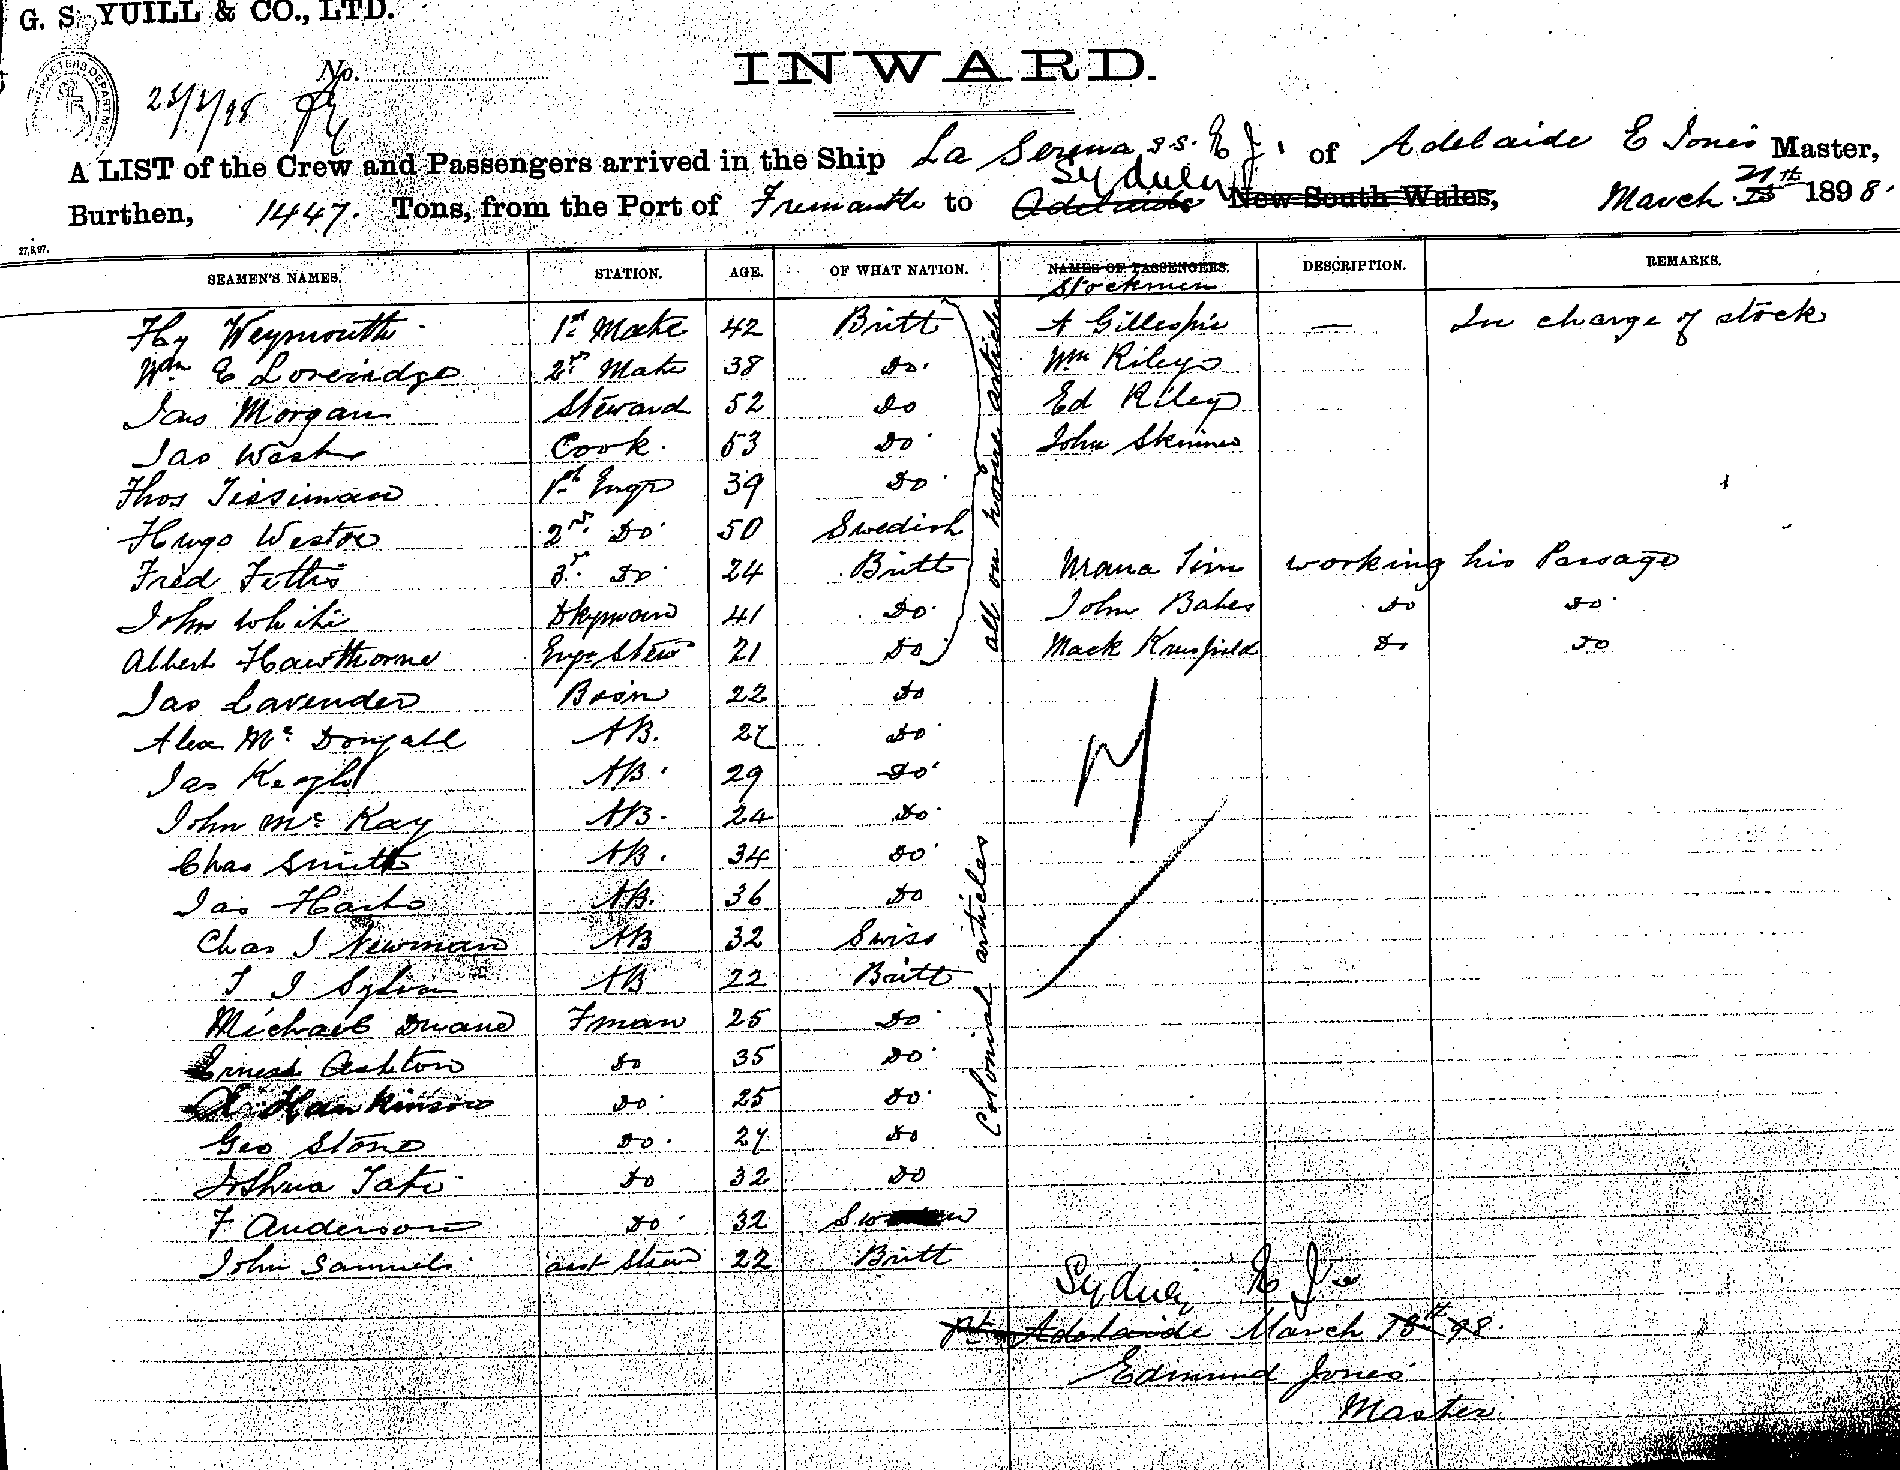 G. S. YUILL & CO., LTD.
No.
INWARD.
A LIST of the Crew and Passengers arrived in the Ship La Serena s.s. E J. of Adelaide E Jones Master,
Sydney 21th
Burthen, 1447. Tons, from the Port of Fremantle to Adelaide New South Wales, March 1898.
27.8.97.
SEAMEN'S NAMES. STATION. AGE. OF WHAT NATION. NAMES OF PASSENGERS. DESCRIPTION. REMARKS.
Stockmen
Hy Weymouth 1st Mate 42 Britt A Gillespie — In charge of stock
Wm E Loveridge 2nd Mate 38 Do. Wm Riley
Jas Morgan Steward 52 Do Ed Riley
Jas West Cook. 53 Do John Skinner
Thos Tissiman 1st Engr 39 Do
Hugo Westor 2nd Do 50 Swedish
Fred 3rd Do 24 Britt Tim working his Passage
John White Dkyman 41 Do John Bates Do Do
Albert Hawthorne Engr Stew 21 Do Mack Do Do
all on articles
Jas Lavender Bosn 22 Do
Alex Mc Dougall AB. 27 Do
Jas AB. 29 Do
John Mc Kay AB. 24 Do
Chas Smith AB. 34 Do
Jas AB. 36 Do
Chas J Newman AB 32 Swiss
T J Sylvia AB 22 Britt
Michael Duane Fman 25 Do
Ernest Ashton Do 35 Do
Hankinson Do 25 Do
Geo Stone Do. 27 Do
Joshua Tate Do 32 Do
F Anderson Do 32
John Samuels asst Stew 22 Britt
Colonial articles
Sydney E J
Adelaide March 18th 98.
Edmund Jones
Master